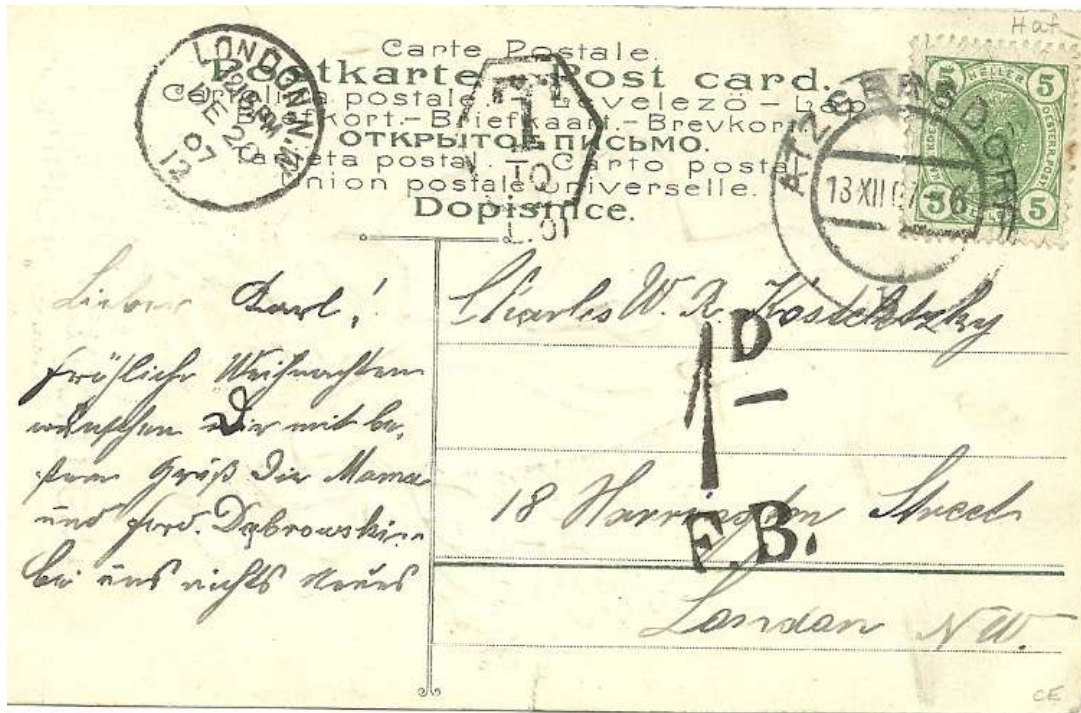 Haf
Carte Postale.
Postkarte – Post card.
Cartolina postale. – Levelező – Lap.
Brefkort. – Briefkaart. – Brevkort.
ОТКРЫТОЕ ПИСЬМО.
Tarjeta postal. – Carto postal
Union postale universelle.
Dopisnice.
LONDON.N.W.
DE 20
07
12
T
10
L.01
ATZGERSDORF
13 XII 07-6
5 HELLER 5
5 5
Lieber Karl!
Fröhliche Weihnachten
wünschen Dir mit be-
stem Gruß Die Mama
und Ferd. Dąbrowski
bei uns nichts Neues
Charles W. R. Kosteletzky
1D
18 Harrington Street
F.B.
London N.W.
CE